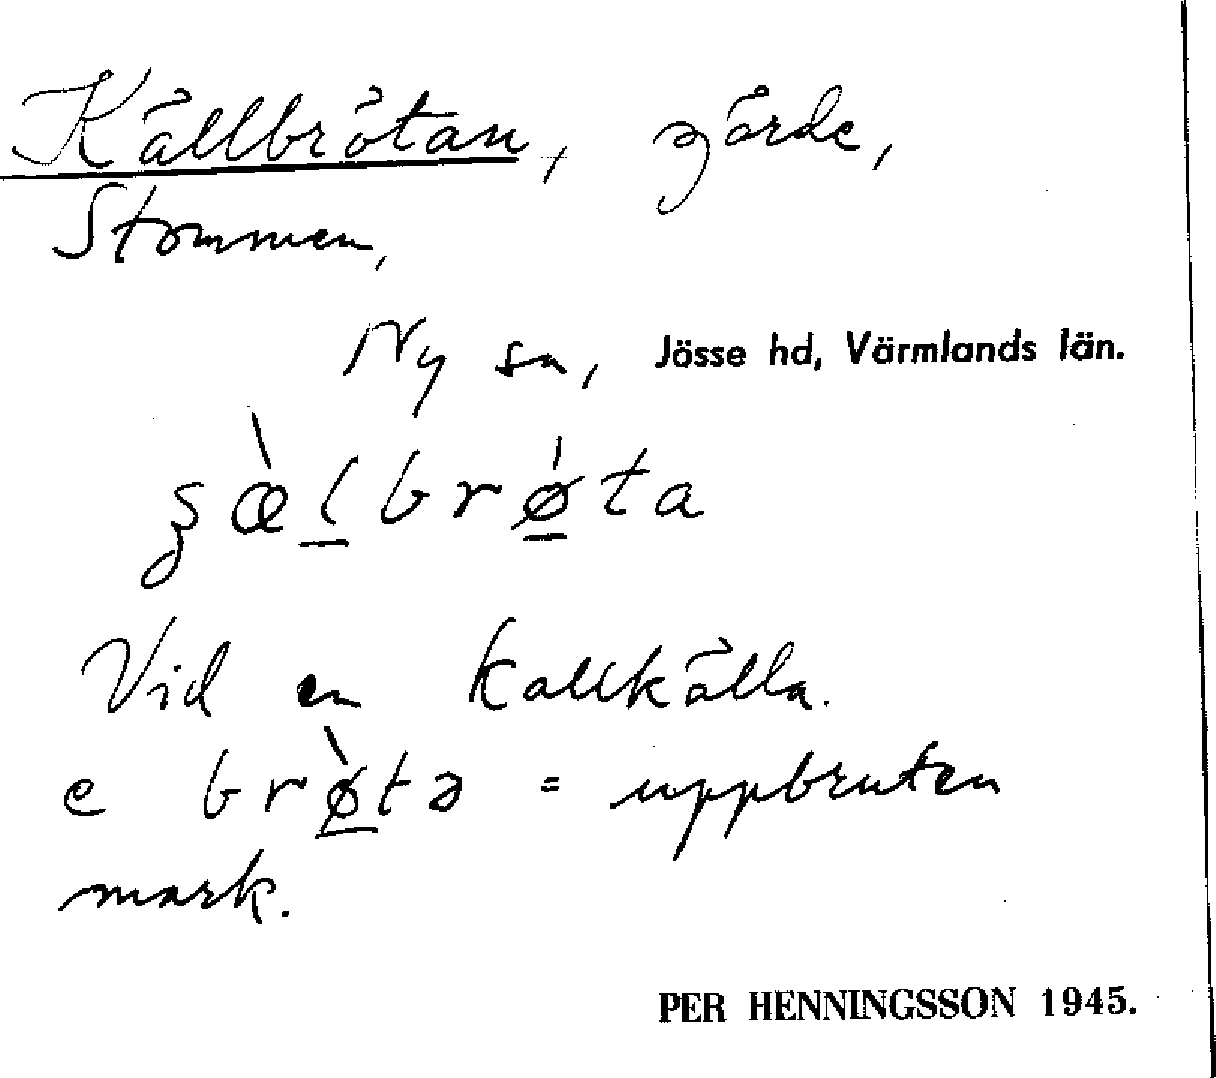 Källbrötan, gärde,
Stommen,
Ny sn, Jösse hd, Värmlands län.
ʂæ̀l̠brǿ̠ta
Vid en kallkälla.
e brø̠̀tə = uppbruten
mark.
PER HENNINGSSON 1945.